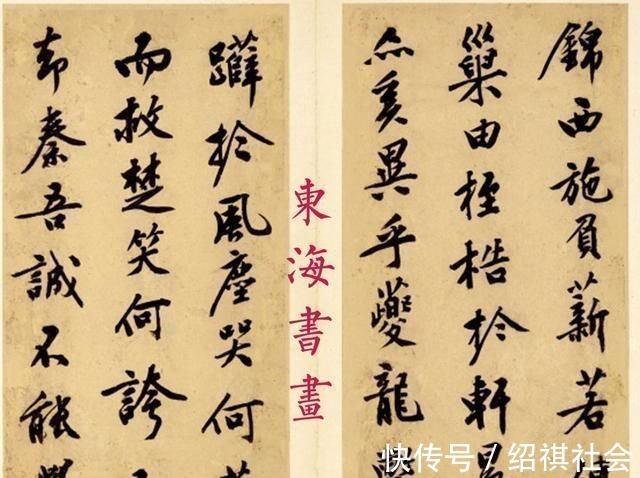 錦西施負薪若
巢由桎梏於軒
亦奚異乎夔龍
東海書畫
躃於風塵哭何
而救楚笑何誇
却秦吾誠不能
快传号/绍祺社会